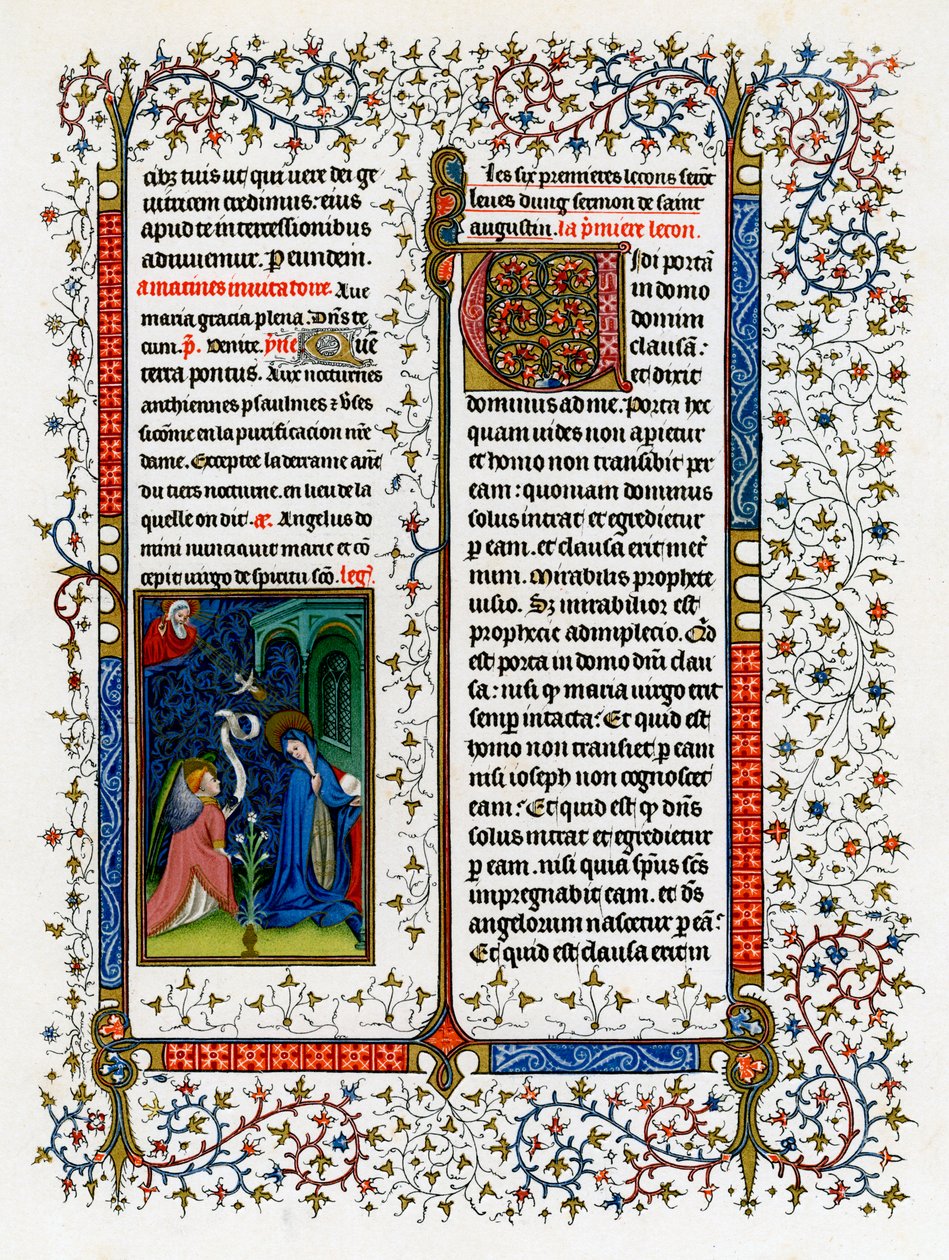 tuis ut qui uere dei ge
nitricem credimus: eius
apud te intercessionibus
adiuuemur. P eundem.
a matines inuitatoire. Aue
maria gracia plena Dn̄s te
cum. p̄. Venite. Quē
terra pontus. Aux nocturnes
anthiennes psaulmes ⁊ v̄ses
sicōme en la purificacion nr̄e
dame. Exceptee la derraine ant̄
du tiers nocturne. en lieu de la
quelle on dit. Angelus do
mini nunciauit marie et cō
cepit uirgo de spiritu sc̄o. lec̄.
Les six premieres lecons
leues dung sermon de saint
augustin. la p̄miere lecon.
Vidi portā
in domo
domini
clausā:
et dixit
dominus ad me. Porta hec
quam uides non apietur
et homo non transibit per
eam: quoniam dominus
solus intrat et egredietur
p eam. et clausa erit in et̄
num. Mirabilis prophete
uisio. Sz mirabilior est
prophecie adimplecio. Q̄d
est porta in domo dn̄i clau
sa: nisi q̄ maria uirgo erit
semp̄ intacta: Et quid est
homo non transiet p eam
nisi ioseph non cognoscet
eam: Et quid est q̄ dn̄s
solus intrat et egredietur
p eam. nisi quia sp̄us sc̄s
impregnabit eam. et d̄s
angelorum nascetur p eā:
Et quid est clausa erit in